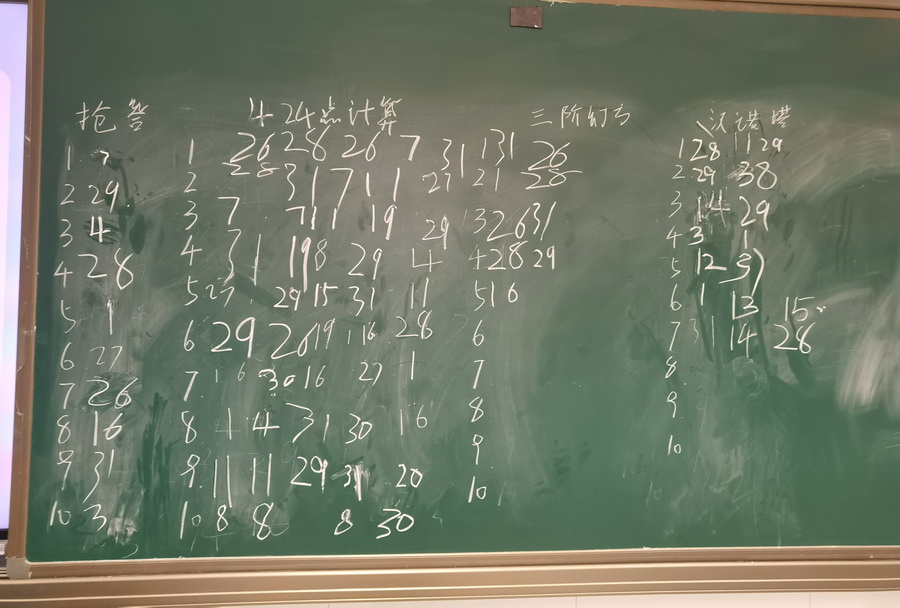 抢答 4 24点计算 三阶 汉诺塔
1 7 1 26 28 26 7 31 131 26 1 28 1 29
2 29 2 28 31 7 11 27 21 28 2 29 38
3 4 3 7 7 11 19 29 3 26 31 3 14 29
4 28 4 31 19 8 29 4 4 28 29 4 3 1
5 1 5 27 29 15 31 11 5 16 5 12 31
6 27 6 29 26 19 16 28 6 6 1 13 15
7 26 7 16 30 16 27 1 7 7 31 14 28
8 16 8 4 4 31 30 16 8 8
9 31 9 11 11 29 31 20 9 9
10 3 10 8 8 8 30 10 10